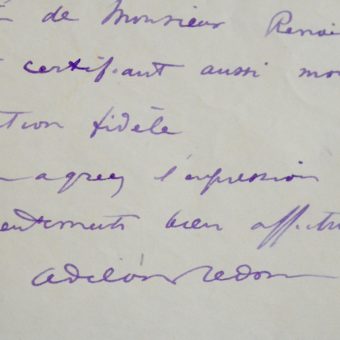 de Monsieur Renoi
certifiant aussi mo
tion fidèle
agréez l'expression
entiments bien affectu
Odilon Redon